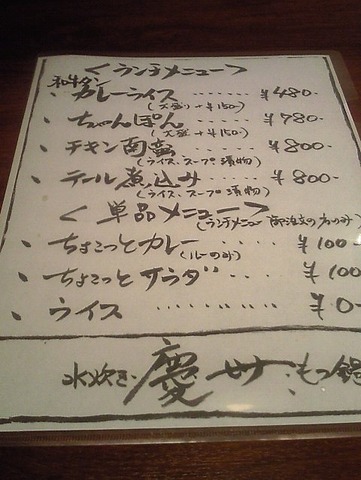 <ランチメニュー>
和牛タン
・カレーライス・・・¥480-
(大盛り+¥150-)
・ちゃんぽん・・・・¥780-
(大盛り+¥150-)
・チキン南蛮・・・・¥800-
(ライス、スープ、漬物)
・テール煮込み・・・¥800-
(ライス、スープ、漬物)
<単品メニュー>
(ランチメニュー御注文の方のみ)
・ちょこっとカレー・・・¥100-
(ルーのみ)
・ちょこっとサラダ・・・・¥100
・ライス・・・・・・・・・¥0-
水炊き・慶・もつ鍋